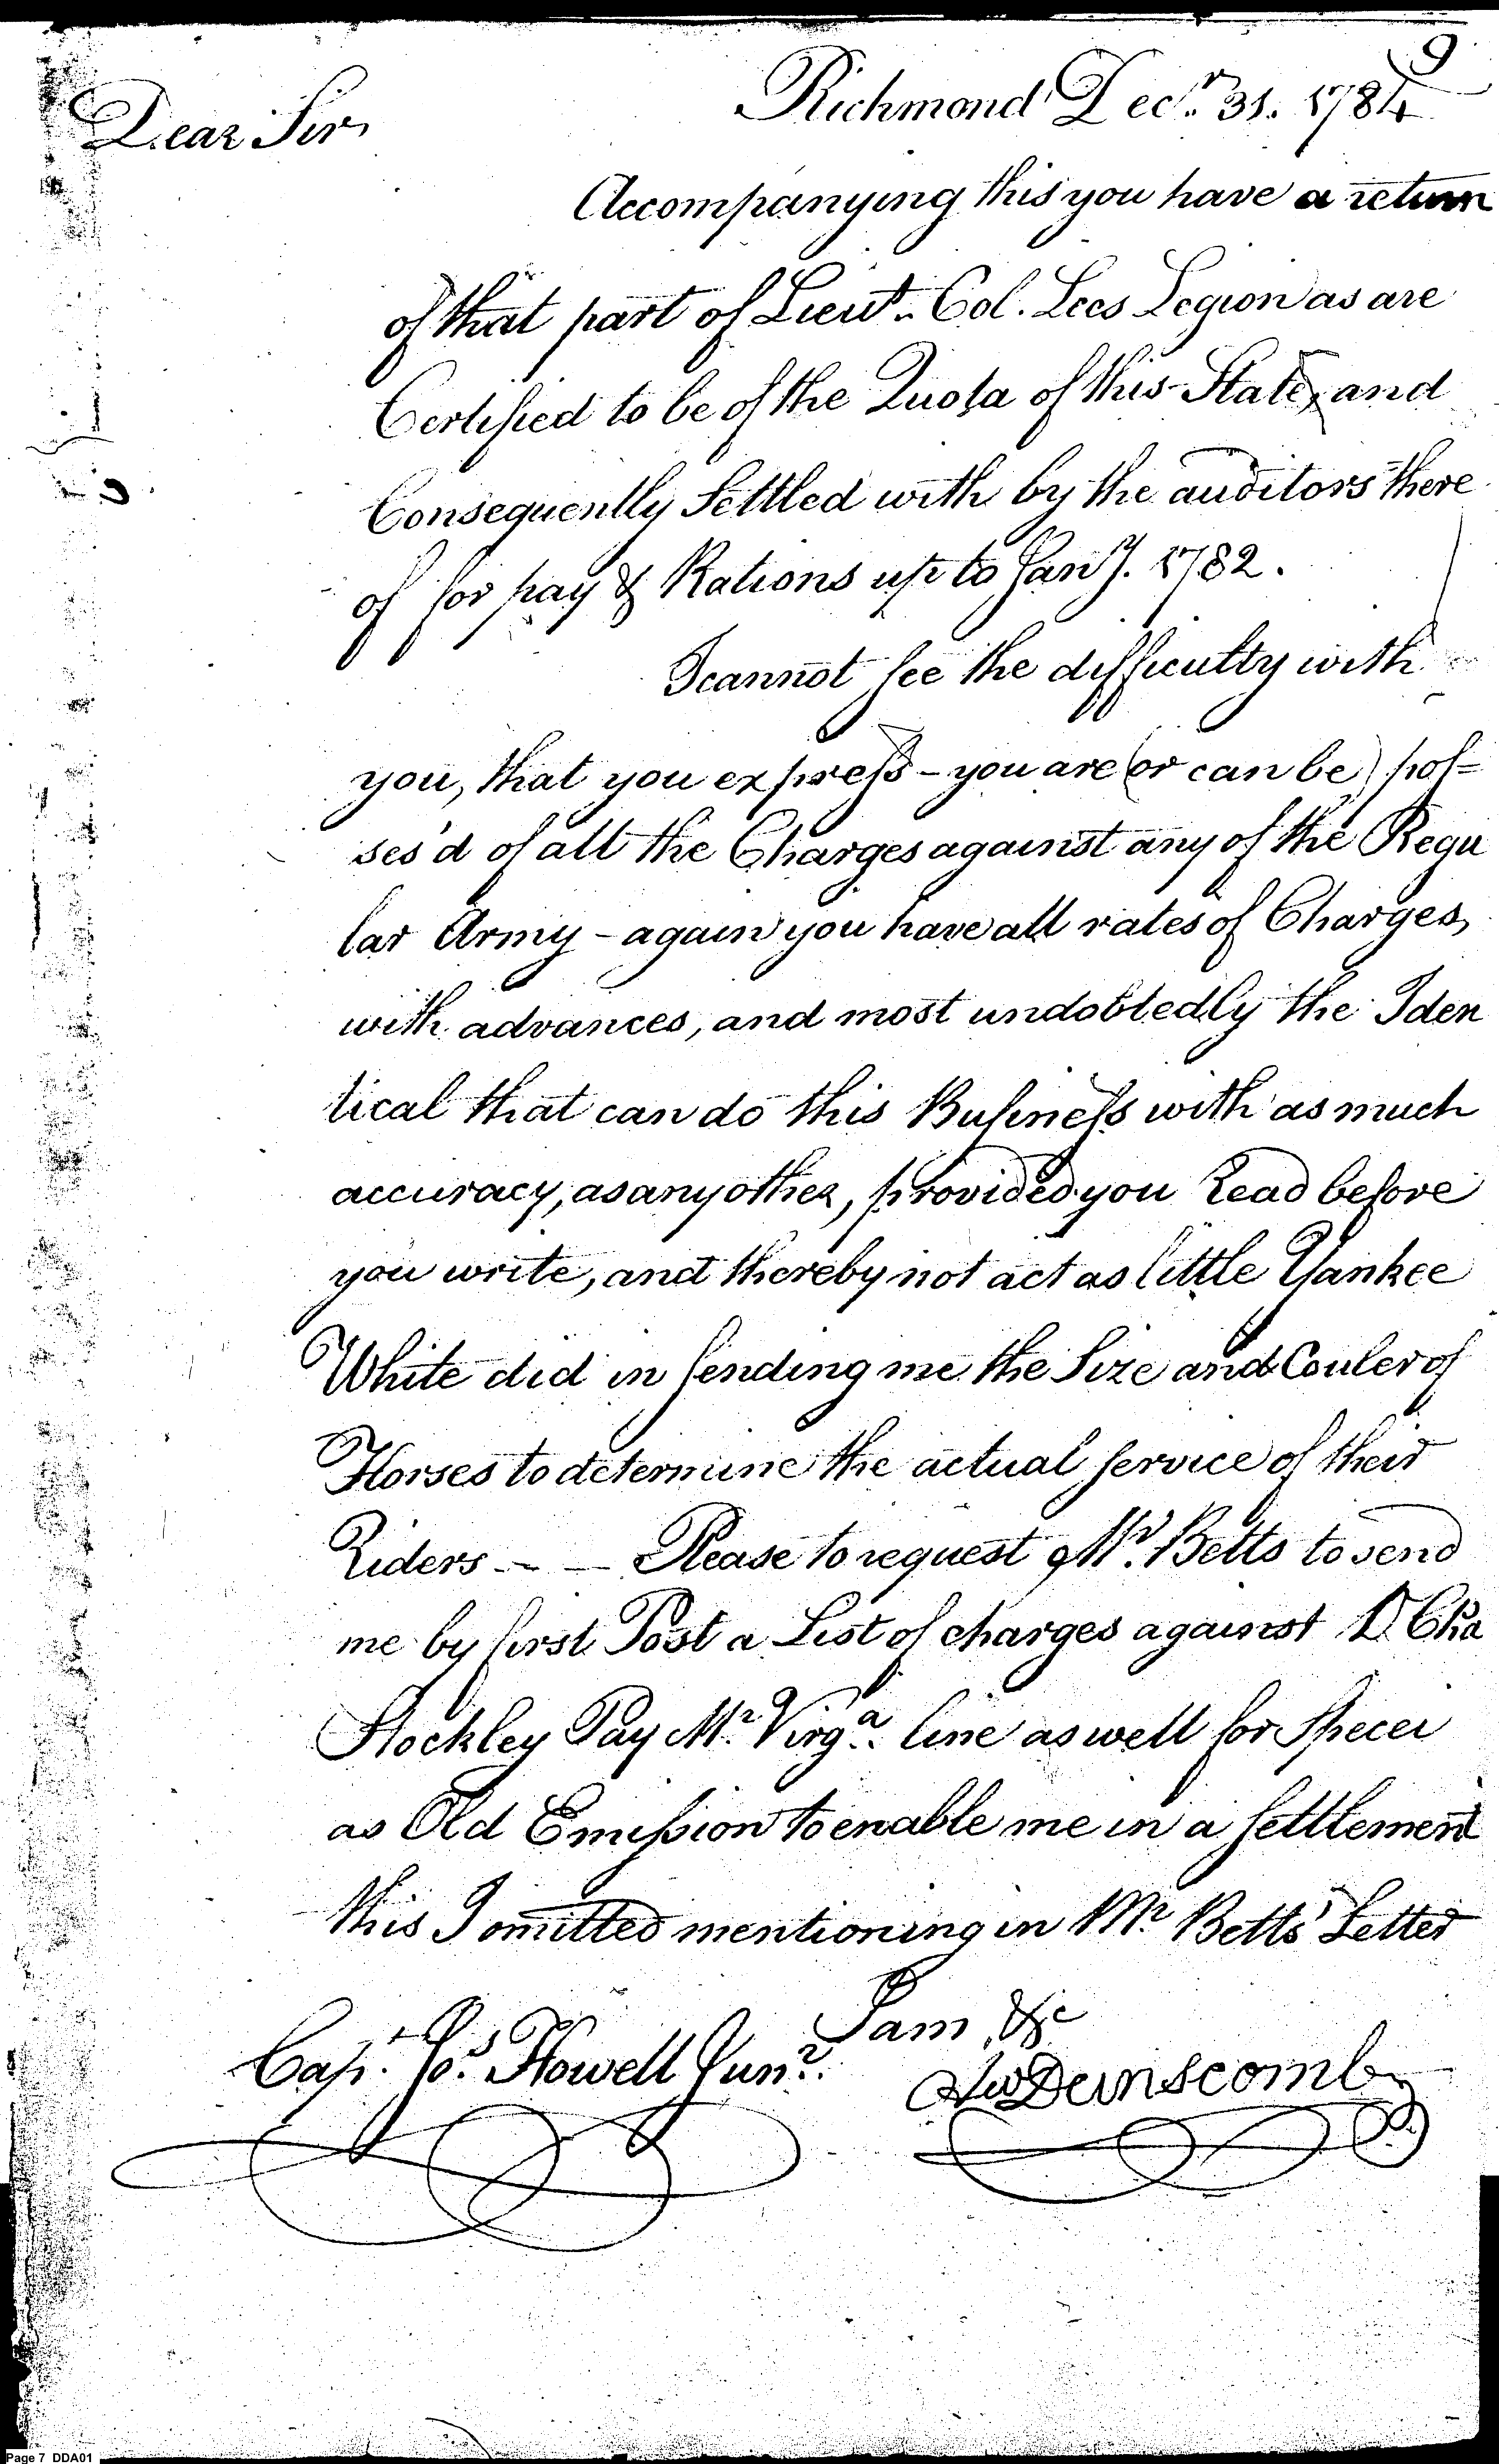 9
Richmond Decr. 31. 1784
Dear Sir,
Accompanying this you have a return
of that part of Lieut. Col. Lees Legion as are
Certified to be of the Quota of this State, and
Consequently Settled with by the auditors there
of for pay & Rations up to Jany. 1782.
I cannot see the difficulty with
you, that you express - you are (or can be) pos=
ses'd of all the Charges against any of the Regu
lar Army - again you have all rates of Charges,
with advances, and most undobtedly the Iden
tical that can do this Business with as much
accuracy, as any other, provided you Read before
you write, and thereby not act as little Yankee
White did in sending me the Size and Couler of
Horses to determine the actual service of their
Riders - - Please to request Mr. Betts to send
me by first Post a List of charges against Cha
Stockley Pay Mr. Virga. line as well for Specei
as Old Emission to enable me in a settlement
this I omitted mentioning in Mr Betts' Letter
I am &c
Capt. Jos. Howell Junr.
Aw Dunscomb
Page 7 DDA01